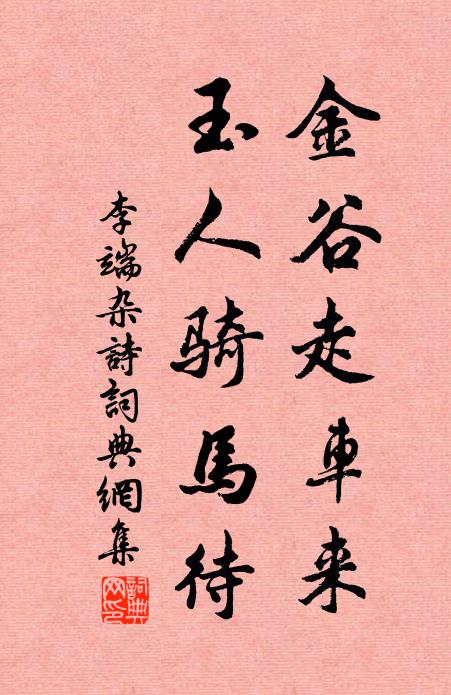 金谷走車来
玉人骑馬待
李端杂詩詞典網集
詞典網印